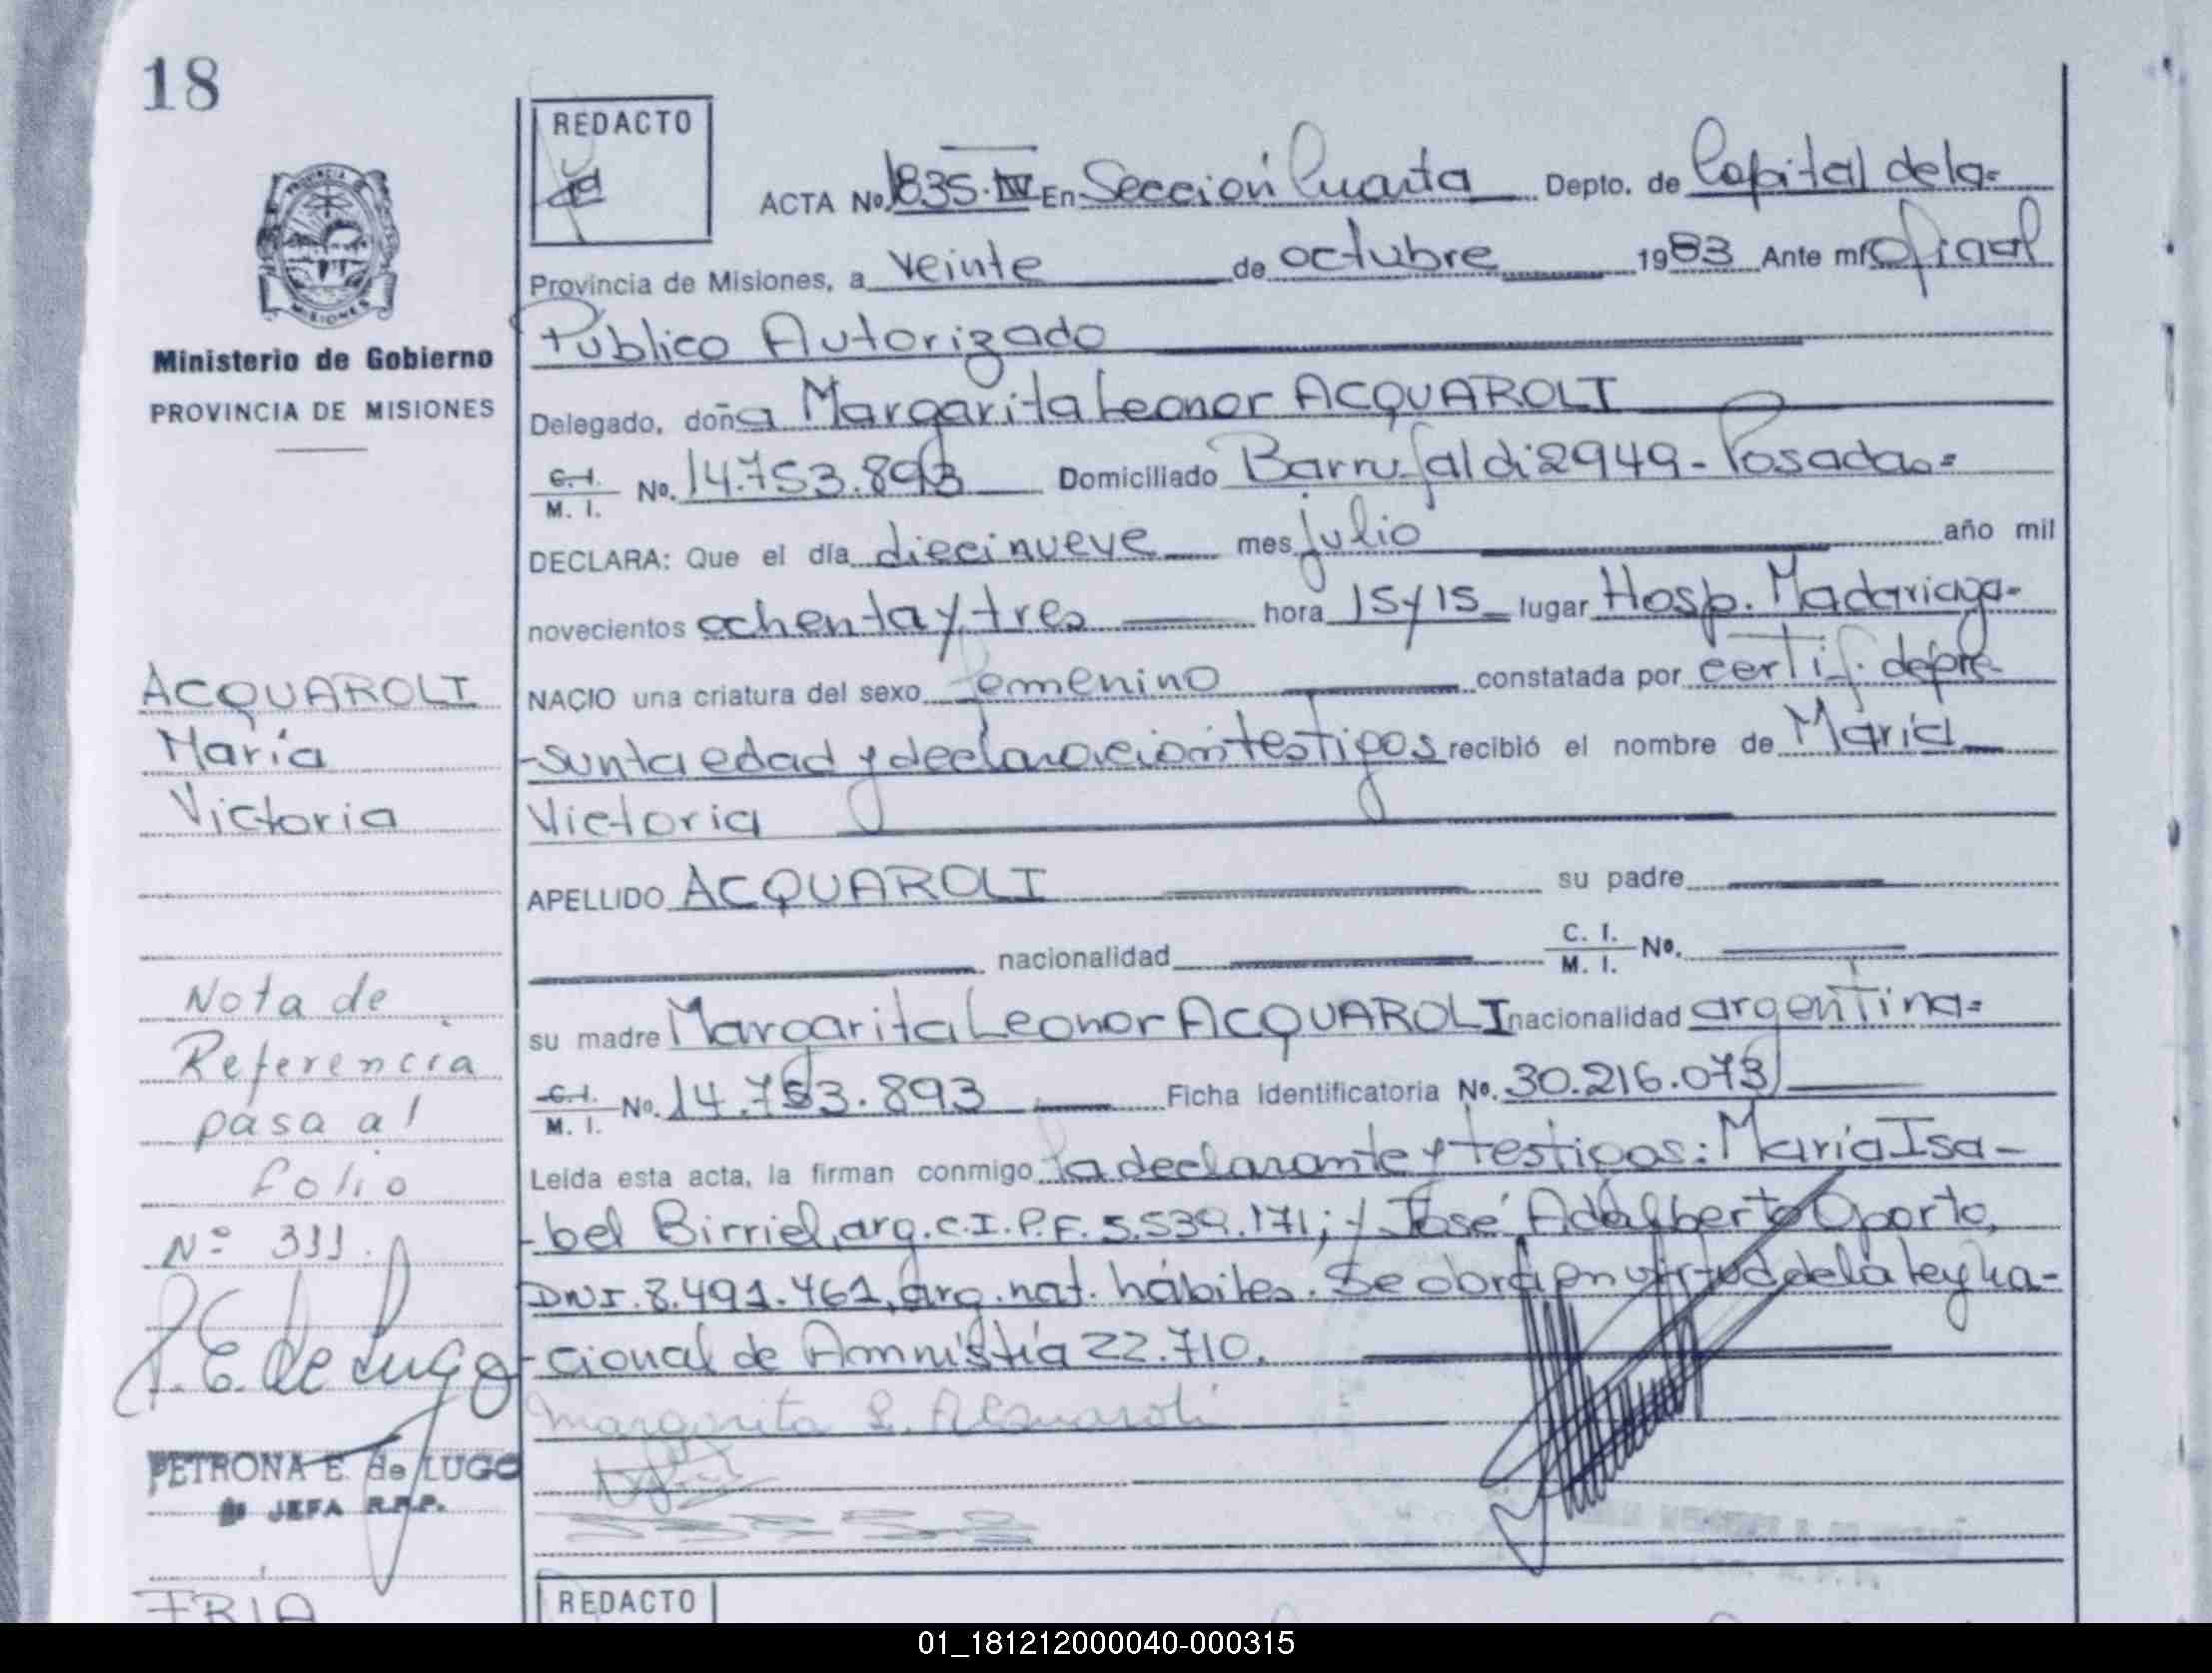 18
REDACTO
ACTA No. 1835-IV En Sección Cuarta Depto. de Capital de la-
Provincia de Misiones, a veinte de octubre 1983 Ante mí Oficial
Público Autorizado
Ministerio de Gobierno
PROVINCIA DE MISIONES
Delegado, doña Margarita Leonor ACQUAROLI
C. I. M. I. No. 14.753.893 Domiciliado Barrufaldi 2949 - Posadas=
DECLARA: Que el día diecinueve mes julio año mil
novecientos ochenta y tres hora 15 y 15 lugar Hosp. Madariaga-
NACIO una criatura del sexo femenino constatada por certif. de pre-
-sunta edad y declaración testigos recibió el nombre de María
Victoria
APELLIDO ACQUAROLI su padre
nacionalidad C. I. M. I. No.
su madre Margarita Leonor ACQUAROLI nacionalidad argentina=
C. I. M. I. No. 14.753.893 Ficha Identificatoria No. 30.216.073
Leída esta acta, la firman conmigo la declarante y testigos: María Isa-
-bel Birriel, arg. C.I.P.F. 5.539.171; y José Adalberto Oporto,
DNI. 8.491.461, arg. nat. hábiles. Se obra en virtud de la Ley Na-
-cional de Amnistía 22.710.
Margarita L. Acquaroli
ACQUAROLI
María
Victoria
Nota de
Referencia
pasa al
folio
Nº 311.
P. E. de Lugo
PETRONA E. de LUGO
JEFA R.P.P.
REDACTO
01_181212000040-000315